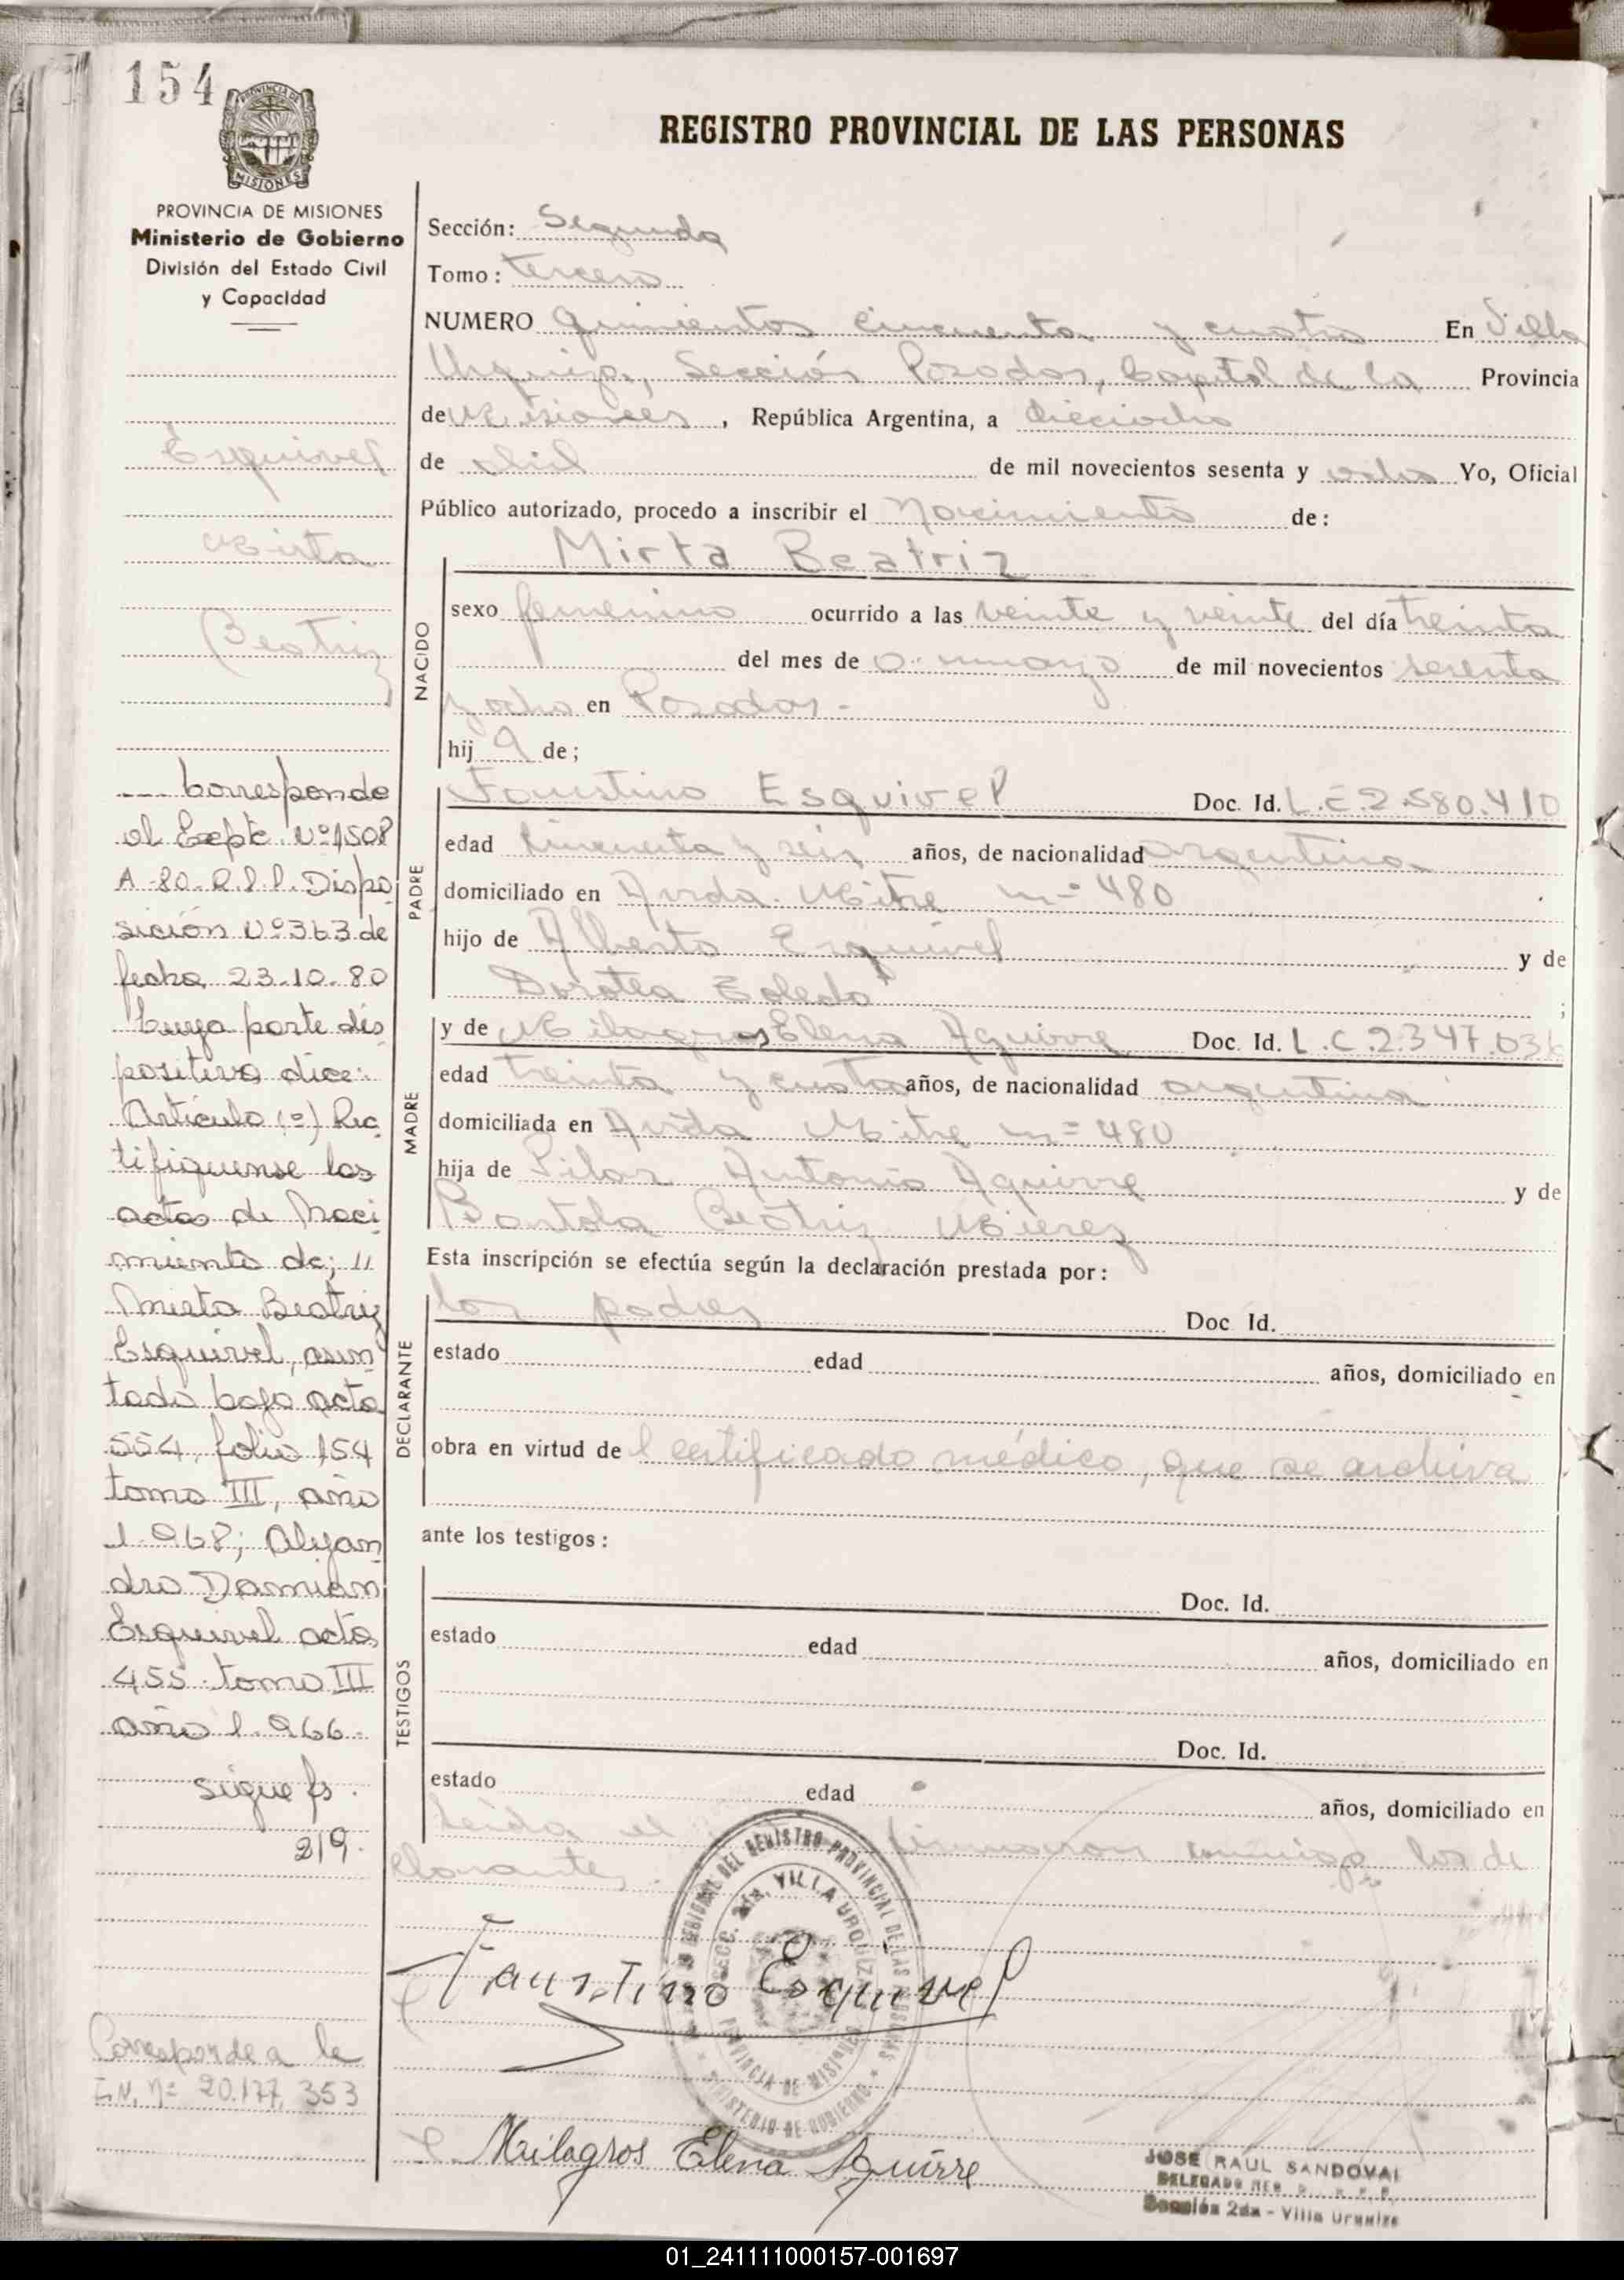 154
PROVINCIA DE
MISIONES
PROVINCIA DE MISIONES
Ministerio de Gobierno
División del Estado Civil
y Capacidad
REGISTRO PROVINCIAL DE LAS PERSONAS
Sección: Segunda
Tomo: tercero
NUMERO quinientos cincuenta y cuatro En Villa
Urquiza, Sección Posadas, Capital de la Provincia
de Misiones, República Argentina, a dieciocho
de de mil novecientos sesenta y ocho Yo, Oficial
Público autorizado, procedo a inscribir el Nacimiento de:
Mirta Beatriz
NACIDO
sexo femenino ocurrido a las veinte y veinte del día treinta
del mes de mayo de mil novecientos sesenta
y ocho en Posadas.-
hija de;
PADRE
Faustino Esquivel Doc. Id. L.E.2.580.410
edad cincuenta y seis años, de nacionalidad argentina
domiciliado en Avda. Mitre nº 480
hijo de Alberto Esquivel y de
Dorotea Toledo ;
MADRE
y de Milagros Elena Aguirre Doc. Id. L.C.2.347.036
edad treinta y cuatro años, de nacionalidad argentina
domiciliada en Avda Mitre nº 480
hija de Pilar Antonio Aguirre y de
Bartola Beatriz Mierez
Esta inscripción se efectúa según la declaración prestada por:
DECLARANTE
los padres Doc Id.
estado edad años, domiciliado en
obra en virtud del certificado médico, que se archiva
ante los testigos:
TESTIGOS
Doc. Id.
estado edad años, domiciliado en
Doc. Id.
estado edad años, domiciliado en
Leída el firmaron conmigo los de
clarantes.
Faustino Esquivel
Milagros Elena Aguirre
REGIONAL DEL REGISTRO PROVINCIAL DE LAS PERSONAS
SECC. 2da. VILLA URQUIZA
PROVINCIA DE MISIONES
MINISTERIO DE GOBIERNO
JOSE RAUL SANDOVAL
DELEGADO
Sección 2da - Villa Urquiza
Esquivel
Mirta
Beatriz
--- Corresponde
al Expte. Nº 1508
A-80-R.P.P. Dispo
sición Nº 363 de
fecha 23-10-80
Cuya parte dis
positiva dice:
Artículo 1º) Rec
tifiquense las
actas de Naci
miento de; 11
Mirta Beatriz
Esquivel, asen
tada bajo acta
554, folio 154
tomo III, año
1.968; Alejan
dro Damian
Esquivel acta
455 tomo III
año 1.966.
sigue fs.
219.
Corresponde a la
I.N. Nº 20.177.353
01_241111000157-001697